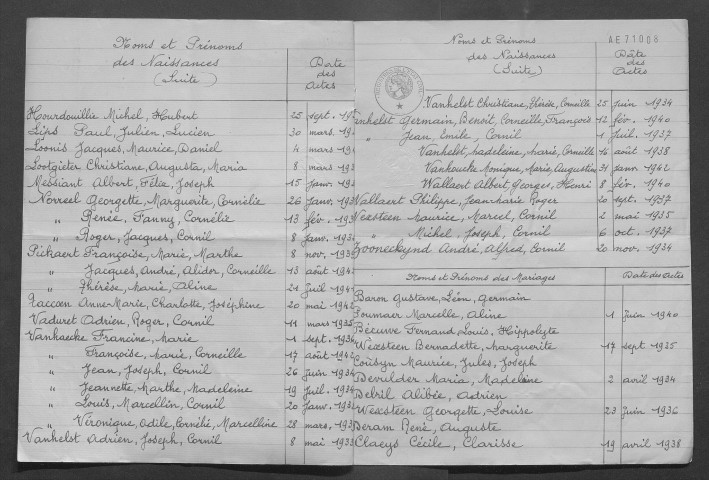 Noms et Prénoms
des Naissances
(Suite)
Date
des
Actes
Hourdouillie Michel, Hubert 25 sept.
Lips Paul, Julien, Lucien 30 mars
Loonis Jacques, Maurice, Daniel 4 mars
Lootgieter Christiane, Augusta, Maria 8 mars
Messiant Albert, Félix, Joseph 15 janv.
Neyreel Georgette, Marguerite, Cornélie 26 janv.
" Renée, Fanny, Cornélie 13 fév.
" Roger, Jacques, Cornil 8 janv.
Pickaert Françoise, Marie, Marthe 8 nov.
" Jacques, André, Alidor, Corneille 13 août
" Thérèse, Marie, Aline 21 juil
Taccoen Anne-Marie, Charlotte, Joséphine 20 mai
Vaduret Adrien, Roger, Cornil 11 mars
Vanhaecke Francine, Marie 1 sept.
" Françoise, Marie, Corneille 17 août
" Jean, Joseph, Cornil 26 juin
" Jeannette, Marthe, Madeleine 19 juil.
" Louis, Marcellin, Cornil 20 janv.
" Véronique, Adile, Cornélie, Marcelline 28 mars
Vanhelst Adrien, Joseph, Cornil 8 mai
AE71008
Noms et Prénoms
des Naissances
(Suite)
Date
des
Actes
Vanhelst Christiane, Thérèse, Corneille 25 juin 1934
Vanhelst Germain, Benoit, Corneille, François 12 fév. 1940
" Jean, Emile, Cornil 1 juil. 1937
Vanhelst, Madeleine, Marie, Corneille 14 août 1938
Vanhoucke Monique, Marie, Augustine 31 janv. 1942
Wallaert Albert, Georges, Henri 8 fév. 1940
Wallaert Philippe, Jean-Marie, Roger 20 sept. 1937
Wexsteen Maurice, Marcel, Cornil 2 mai 1935
" Michel, Joseph, Cornil 6 oct. 1937
Zooneckynd André, Alfred, Cornil 20 nov. 1934
Noms et Prénoms des Mariages
Date des Actes
Baron Gustave, Léon, Germain
Soumaer Marcelle, Aline 1 juin 1940
Bécuve Fernand, Louis, Hippolyte
Wexsteen Bernadette, Marguerite 17 sept 1935
Cousyn Maurice, Jules, Joseph
Devulder Maria, Madeleine 2 avril 1934
Delvil Alibée, Adrien
Wexsteen Georgette, Louise 23 juin 1936
Deram René, Auguste
Claeys Cécile, Clarisse 19 avril 1938